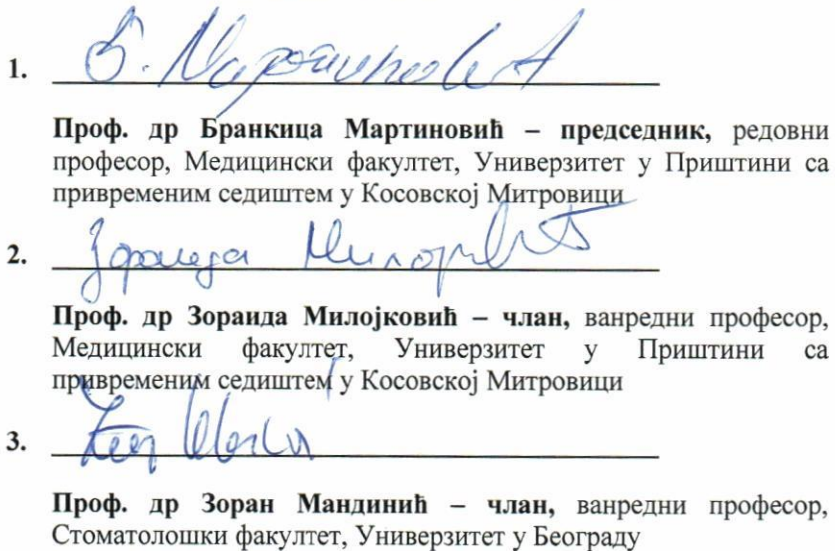 1.
Проф. др Бранкица Мартиновић – председник, редовни
професор, Медицински факултет, Универзитет у Приштини са
привременим седиштем у Косовској Митровици
2. Зораида Милојковић
Проф. др Зораида Милојковић – члан, ванредни професор,
Медицински факултет, Универзитет у Приштини са
привременим седиштем у Косовској Митровици
3.
Проф. др Зоран Мандинић – члан, ванредни професор,
Стоматолошки факултет, Универзитет у Београду